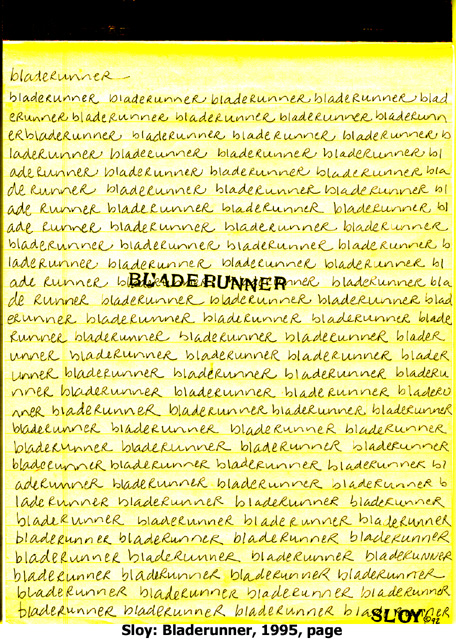 bladeRunner
bladeRunner bladeRunner bladeRunner bladeRunner blad
eRunner bladeRunner bladeRunner bladeRunner bladeRunn
erbladeRunner bladeRunner bladeRunner bladeRunner b
ladeRunner bladeRunner bladeRunner bladeRunner bl
adeRunner bladeRunner bladeRunner bladeRunner bla
de Runner bladeRunner bladeRunner bladeRunner bl
ade Runner bladeRunner bladeRunner bladeRunner bl
ade Runner bladeRunner bladeRunner bladeRunner bl
bladeRunner bladeRunner bladeRunner bladeRunner b
ladeRunner bladeRunner bladeRunner bladeRunner bl
ade Runner bladeRunner bladeRunner bladeRunner bla
BLADERUNNER
de Runner bladeRunner bladeRunner bladeRunner blad
eRunner bladeRunner bladeRunner bladeRunner blade
Runner bladeRunner bladeRunner bladeRunner bladeR
unner bladeRunner bladeRunner bladeRunner bladeR
unner bladeRunner bladeRunner bladeRunner bladeRu
nner bladeRunner bladeRunner bladeRunner bladeRu
nner bladeRunner bladeRunner bladeRunner bladeRunner
bladeRunner bladeRunner bladeRunner bladeRunner
bladeRunner bladeRunner bladeRunner bladeRunner
bladeRunner bladeRunner bladeRunner bladeRunner bl
adeRunner bladeRunner bladeRunner bladeRunner b
ladeRunner bladeRunner bladeRunner bladeRunner
bladeRunner bladeRunner bladeRunner bladeRunner
bladeRunner bladeRunner bladeRunner bladeRunner
bladeRunner bladeRunner bladeRunner bladeRunner
bladeRunner bladeRunner bladeRunner bladeRunner
bladeRunner bladeRunner bladeRunner bladeRunner
bladeRunner bladeRunner bladeRunner bladeRunner
SLOY
Sloy: Bladerunner, 1995, page